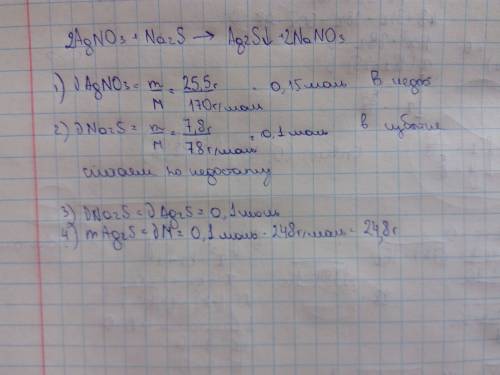 2AgNO3 + Na2S → Ag2S↓ + 2NaNO3
1) νAgNO3 = m/M = 25,5г/170г/моль = 0,15моль В недос
2) νNa2S = m/M = 7,8г/78г/моль = 0,1моль в избытке
считаем по недостатку
3) νNa2S = νAg2S = 0,1моль
4) mAg2S = νM = 0,1 моль · 248г/моль = 24,8г